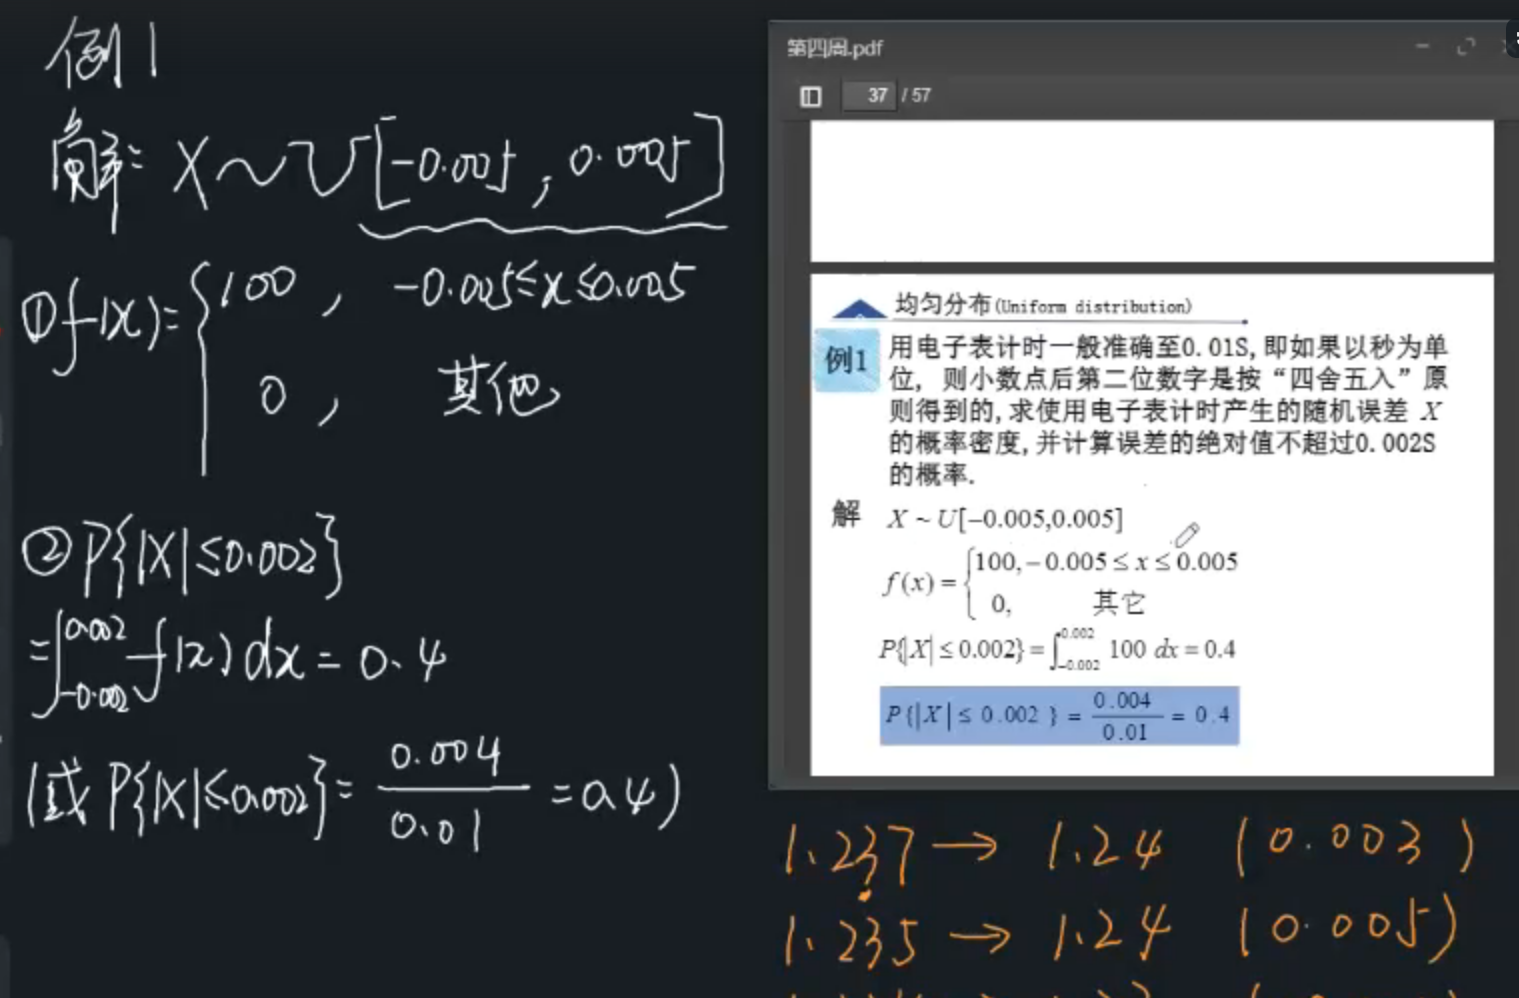 例1
解: X~U[-0.005, 0.005]
①f(x)={100, -0.005≤x≤0.005
0, 其他
②P{|X|≤0.002}
=∫_{-0.002}^{0.002} f(x)dx=0.4
(或 P{|X|≤0.002}=0.004/0.01=0.4)
第四周.pdf
37 / 57
均匀分布(Uniform distribution)
例1 用电子表计时一般准确至0.01S,即如果以秒为单
位, 则小数点后第二位数字是按“四舍五入”原
则得到的,求使用电子表计时产生的随机误差 X
的概率密度,并计算误差的绝对值不超过0.002S
的概率.
解 X ~ U[-0.005,0.005]
f(x)={100,-0.005≤x≤0.005
0, 其它
P{|X|≤0.002}=∫_{-0.002}^{0.002} 100 dx=0.4
P{|X|≤0.002}=0.004/0.01=0.4
1.237→1.24 (0.003)
1.235→1.24 (0.005)